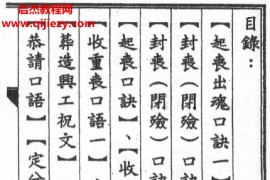 启杰教程网
www.qijiezy.com
目錄：
【起喪出魂口訣一】
【封喪（閉殮）口訣
【封喪（閉殮）口
【起喪口訣】、【收
【收重喪口語一】
【葬造興工祝文】
【恭請口語】【定